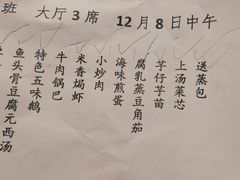 班 大厅3席 12月8日中午
鱼头骨豆腐元西汤
特色五味鹅
牛肉锅巴
米香焗虾
小炒肉
海味煎蛋
腐乳蒸豆角茄
芋仔芋苗
上汤菜芯
送蒸包